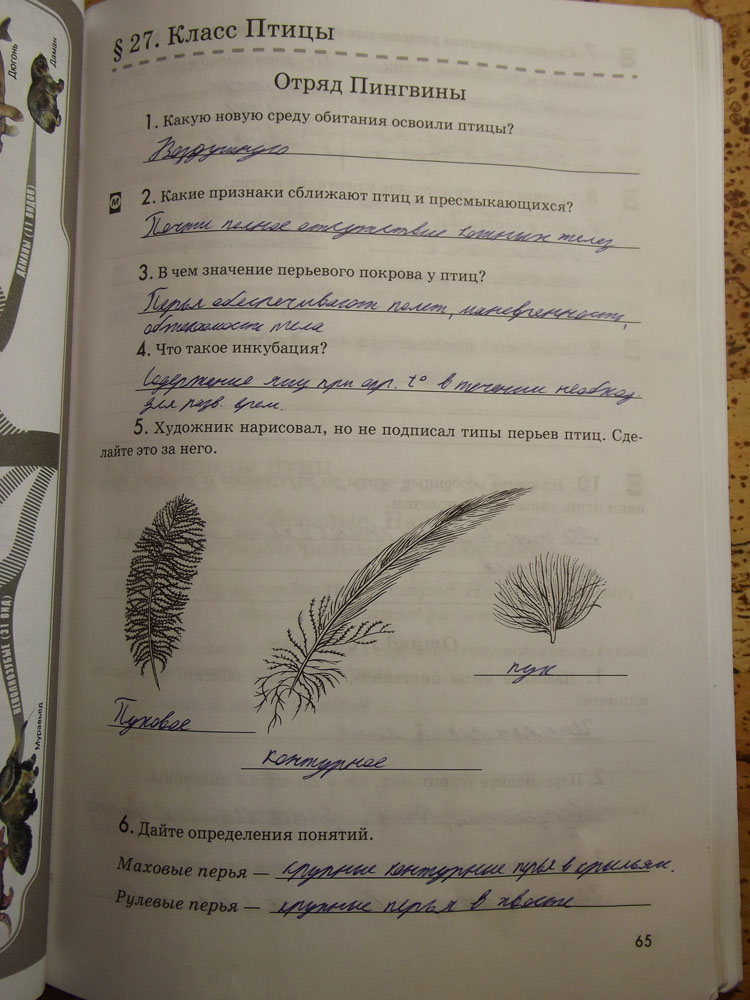 Дюгонь
Даман
ДАМАНЫ (11 ВИДОВ)
НЕПОЛНОЗУБЫЕ (31 ВИД)
Муравьед
§ 27. Класс Птицы
Отряд Пингвины
1. Какую новую среду обитания освоили птицы?
Воздушную
М
2. Какие признаки сближают птиц и пресмыкающихся?
Почти полное отсутствие кожных желез
3. В чем значение перьевого покрова у птиц?
Перья обеспечивают полет, маневренность,
обтекаемость тела
4. Что такое инкубация?
Содержение яиц при опр. t° в течении необход.
для разв. врем.
5. Художник нарисовал, но не подписал типы перьев птиц. Сде-
лайте это за него.
пух
Пуховое
контурное
6. Дайте определения понятий.
Маховые перья — крупные контурные перья в крыльях.
Рулевые перья — крупные перья в хвосте
65